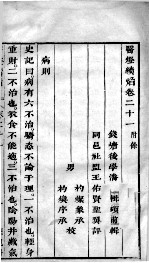 醫燈續焰卷二十一 附餘
錢塘後學潘楫碩甫輯
同邑社盟王佑賢聖翼評
男
杓燦象承校
序承
病則
史記曰病有六不治驕恣不論于理一不治也輕身
重財二不治也衣食不能適三不治也陰陽并藏氣